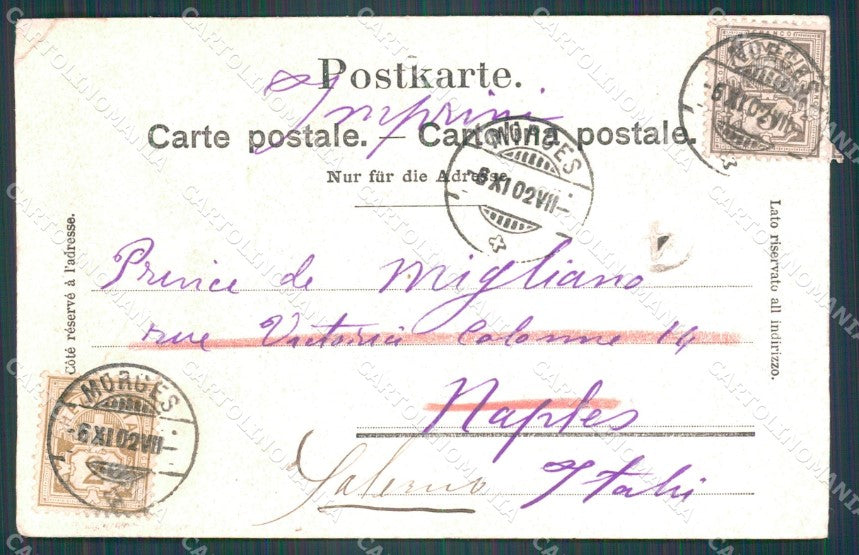 Postkarte.
Imprimé
Carte postale. — Cartolina postale.
Nur für die Adresse.
MORGES
-6 XI 02 VII-
MORGES
-6 XI 02 VII-
Côté réservé à l'adresse.
Lato riservato all indirizzo.
Prince de Migliano
rue Vittoria Colonna 14
Naples
Salerno Italie
MORGES
-6 XI 02 VII-
CARTOLINOMANIA